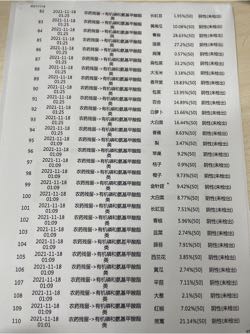 82 2021-11-18 01:25 农药残留->有机磷和氨基甲酸酯类 长豇豆 1.95%(50) 阴性(未检出)
83 2021-11-18 01:25 农药残留->有机磷和氨基甲酸酯类 10.08%(50) 阴性(未检出)
84 2021-11-18 01:25 农药残留->有机磷和氨基甲酸酯类 28.63%(50) 阴性(未检出)
85 2021-11-18 01:25 农药残留->有机磷和氨基甲酸酯类 菠菜 27.2%(50) 阴性(未检出)
86 2021-11-18 01:25 农药残留->有机磷和氨基甲酸酯类 0.57%(50) 阴性(未检出)
87 2021-11-18 01:25 农药残留->有机磷和氨基甲酸酯类 33.2%(50) 阴性(未检出)
88 2021-11-18 01:25 农药残留->有机磷和氨基甲酸酯类 3.18%(50) 阴性(未检出)
89 2021-11-18 01:25 农药残留->有机磷和氨基甲酸酯类 19.85%(50) 阴性(未检出)
90 2021-11-18 01:25 农药残留->有机磷和氨基甲酸酯类 包菜 13.95%(50) 阴性(未检出)
91 2021-11-18 01:25 农药残留->有机磷和氨基甲酸酯类 百合 14.89%(50) 阴性(未检出)
92 2021-11-18 01:25 农药残留->有机磷和氨基甲酸酯类 白萝卜 15.66%(50) 阴性(未检出)
93 2021-11-18 01:25 农药残留->有机磷和氨基甲酸酯类 大白菜 16.44%(50) 阴性(未检出)
94 2021-11-18 01:25 农药残留->有机磷和氨基甲酸酯类 香蕉 8.63%(50) 阴性(未检出)
95 2021-11-18 01:09 农药残留->有机磷和氨基甲酸酯类 梨 3.47%(50) 阴性(未检出)
96 2021-11-18 01:09 农药残留->有机磷和氨基甲酸酯类 苹果 9.2%(50) 阴性(未检出)
97 2021-11-18 01:09 农药残留->有机磷和氨基甲酸酯类 桔子 0.9%(50) 阴性(未检出)
98 2021-11-18 01:09 农药残留->有机磷和氨基甲酸酯类 橙子 9.73%(50) 阴性(未检出)
99 2021-11-18 01:09 农药残留->有机磷和氨基甲酸酯类 金针菇 9.42%(50) 阴性(未检出)
100 2021-11-18 01:09 农药残留->有机磷和氨基甲酸酯类 大白菜 8.77%(50) 阴性(未检出)
101 2021-11-18 01:09 农药残留->有机磷和氨基甲酸酯类 长豇豆 7.51%(50) 阴性(未检出)
102 2021-11-18 01:09 农药残留->有机磷和氨基甲酸酯类 香菇 5.96%(50) 阴性(未检出)
103 2021-11-18 01:09 农药残留->有机磷和氨基甲酸酯类 2.74%(50) 阴性(未检出)
104 2021-11-18 01:09 农药残留->有机磷和氨基甲酸酯类 蒜苔 7.91%(50) 阴性(未检出)
105 2021-11-18 01:09 农药残留->有机磷和氨基甲酸酯类 西兰花 3.85%(50) 阴性(未检出)
106 2021-11-18 01:09 农药残留->有机磷和氨基甲酸酯类 黄瓜 2.74%(50) 阴性(未检出)
107 2021-11-18 01:09 农药残留->有机磷和氨基甲酸酯类 平菇 7.11%(50) 阴性(未检出)
108 2021-11-18 01:09 农药残留->有机磷和氨基甲酸酯类 大葱 2.1%(50) 阴性(未检出)
109 2021-11-18 01:09 农药残留->有机磷和氨基甲酸酯类 红椒 7.02%(50) 阴性(未检出)
110 2021-11-18 01:01 农药残留->有机磷和氨基甲酸酯类 21.14%(50) 阴性(未检出)